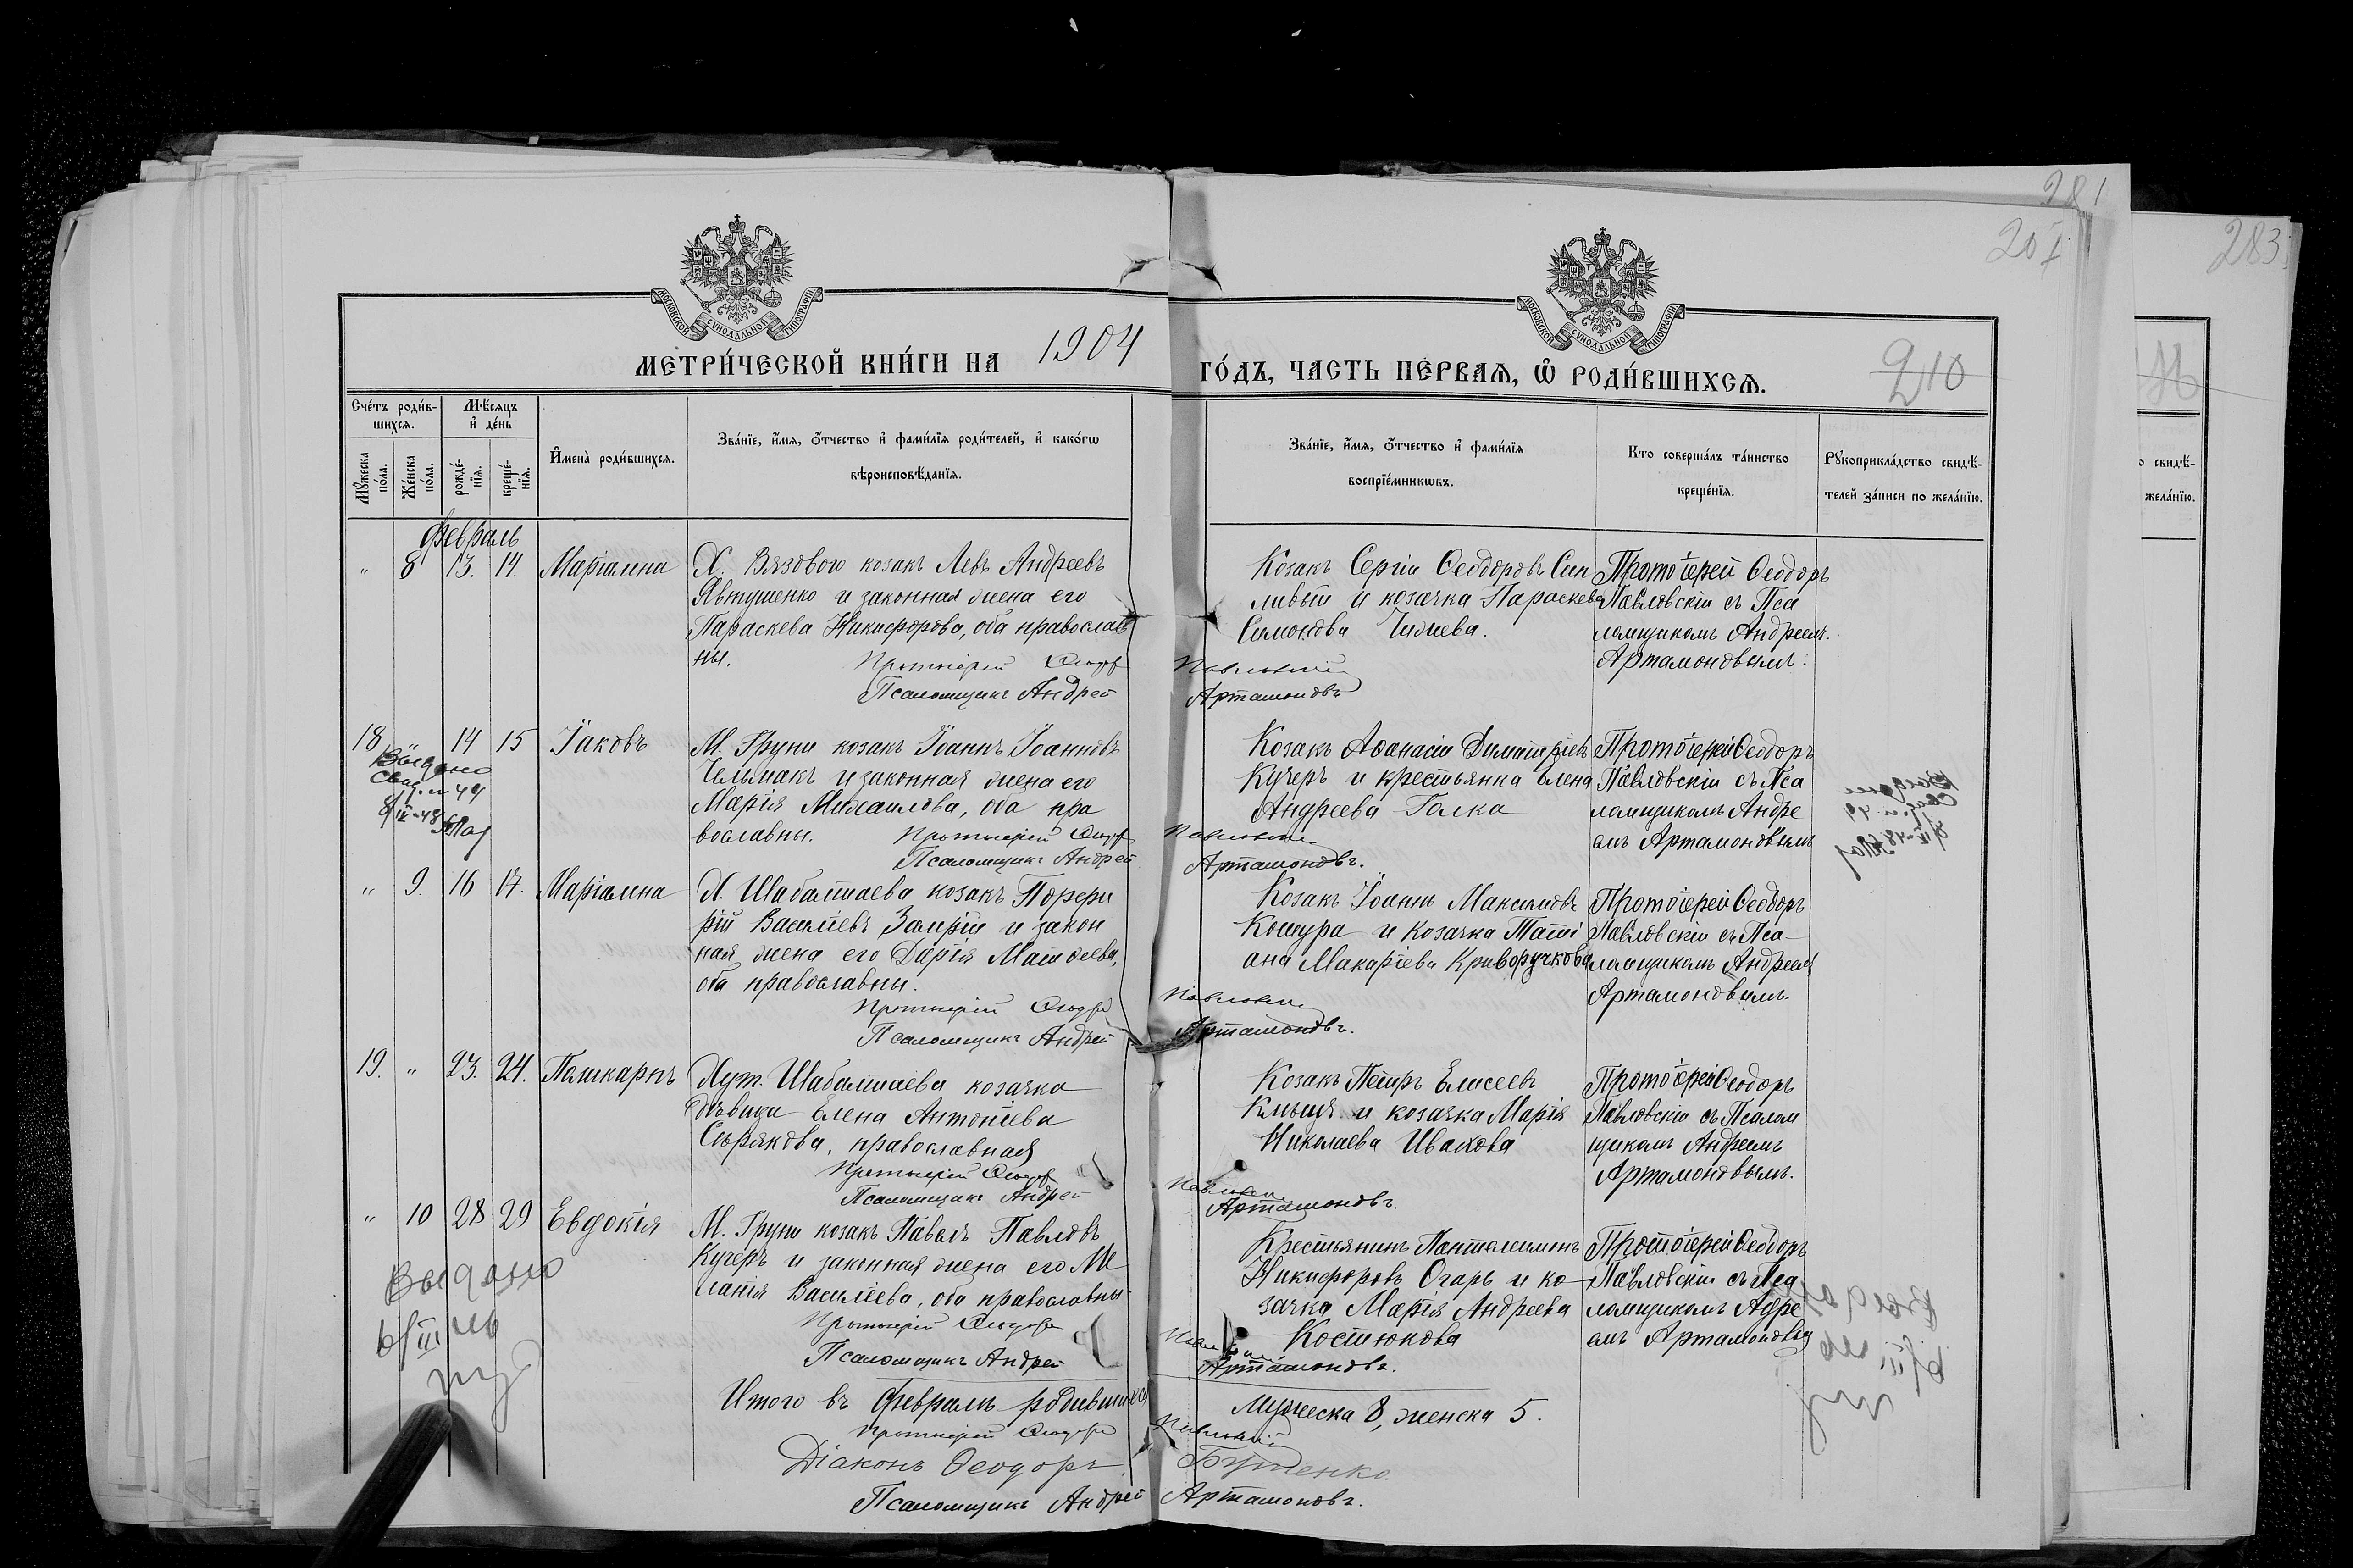 281
201
283
МОСКОВСКОЙ СѴНОДАЛЬНОЙ ТИПОГРАФІИ
МОСКОВСКОЙ СѴНОДАЛЬНОЙ ТИПОГРАФІИ
МЕТРИ́ЧЕСКОЙ КНИ́ГИ НА 1904 ГО́ДЪ, ЧАСТЬ ПЕ́РВАѦ, Ѡ҆ РОДИ́ВШИХСѦ.
210
Сче́тъ роди́в-
шихсѧ.
Мѣ́сѧцъ
и҆ де́нь
Мꙋ́жеска
по́ла.
Же́нска
по́ла.
рожде́-
нїѧ.
креще́-
нїѧ.
И҆мена̀ роди́вшихсѧ.
Зва́нїе, и҆́мѧ, ѻ҆́тчество и҆ фами́лїѧ роди́телей, и҆ како́гѡ
вѣроисповѣ́данїѧ.
Зва́нїе, и҆́мѧ, ѻ҆́тчество и҆ фами́лїѧ
воспрїе́мникѡвъ.
Кто соверша́лъ та́инство
креще́нїѧ.
Рꙋкоприкла́дство свидѣ́-
телей за́писи по жела́нїю.
о свидѣ́-
жела́нїю.
Февраль
" 8 13. 14. Маріамна
Х. Вязового козакъ Левъ Андреевъ
Явтушенко и законная жена его
Параскева Никифорова, оба православ
ны.
Протоіерей Ѳеодоръ Павловскій
Псаломщикъ Андрей Артамоновъ
Козакъ Сергій Ѳеодоровъ Сип
ливый и козачка Параскева
Симонова
Протоіерей Ѳеодоръ
Павловскій съ Пса
ломщикомъ Андреемъ
Артамоновымъ.
18 14 15 Іаковъ
Выдано
свид. н 49
8/IX-48
М. Груни козакъ Іоаннъ Іоанновъ
Чельмакъ и законная жена его
Марія Михаилова, оба пра
вославны.
Протоіерей Ѳеодоръ Павловскій
Псаломщикъ Андрей Артамоновъ.
Козакъ Аѳанасій Димитріевъ
Кучеръ и крестьянка Елена
Андреева Галка
Протоіерей Ѳеодоръ
Павловскій съ Пса
ломщикомъ Андре
емъ Артамоновымъ
" 9. 16 17. Маріамна
Х. Шабалтаева козакъ Порфи
рій Василіевъ Замрій и закон
ная жена его Дарія Матѳеева,
оба православны.
Протоіерей Ѳеодоръ Павловскій
Псаломщикъ Андрей Артамоновъ.
Козакъ Іоаннъ Максимовъ
Кошура и козачка Таті
ана Макаріева Криворучкова
Протоіерей Ѳеодоръ
Павловскій съ Пса-
ломщикомъ Андреемъ
Артамоновымъ.
19. " 23. 24. Поликарпъ
Хут. Шабалтаева козачка
дѣвица Елена Антоніева
Сѣрякова, православная
Протоіерей Ѳеодоръ Павловскій
Псаломщикъ Андрей Артамоновъ.
Козакъ Петръ Елисеевъ
и козачка Марія
Николаева Ивахова
Протоіерей Ѳеодоръ
Павловскій съ Псалом
щикомъ Андреемъ
Артамоновымъ.
" 10 28 29 Евдокія
Выдано
М. Груни козакъ Павелъ Павловъ
Кучеръ и законная жена его Ме
ланія Василіева, оба православны
Протоіерей Ѳеодоръ Павловскій
Псаломщикъ Андрей Артамоновъ.
Крестьянинъ Пантелеимонъ
Никифоровъ Огарь и ко-
зачка Марія Андреева
Костюкова
Протоіерей Ѳеодоръ
Павловскій съ Пса
ломщикомъ Адре
емъ Артамоновым
Итого въ Февралѣ родившихся Мужеска 8, женска 5.
Протоіерей Ѳеодоръ Павловскій
Діаконъ Ѳеодоръ Бутенко.
Псаломщикъ Андрей Артамоновъ.